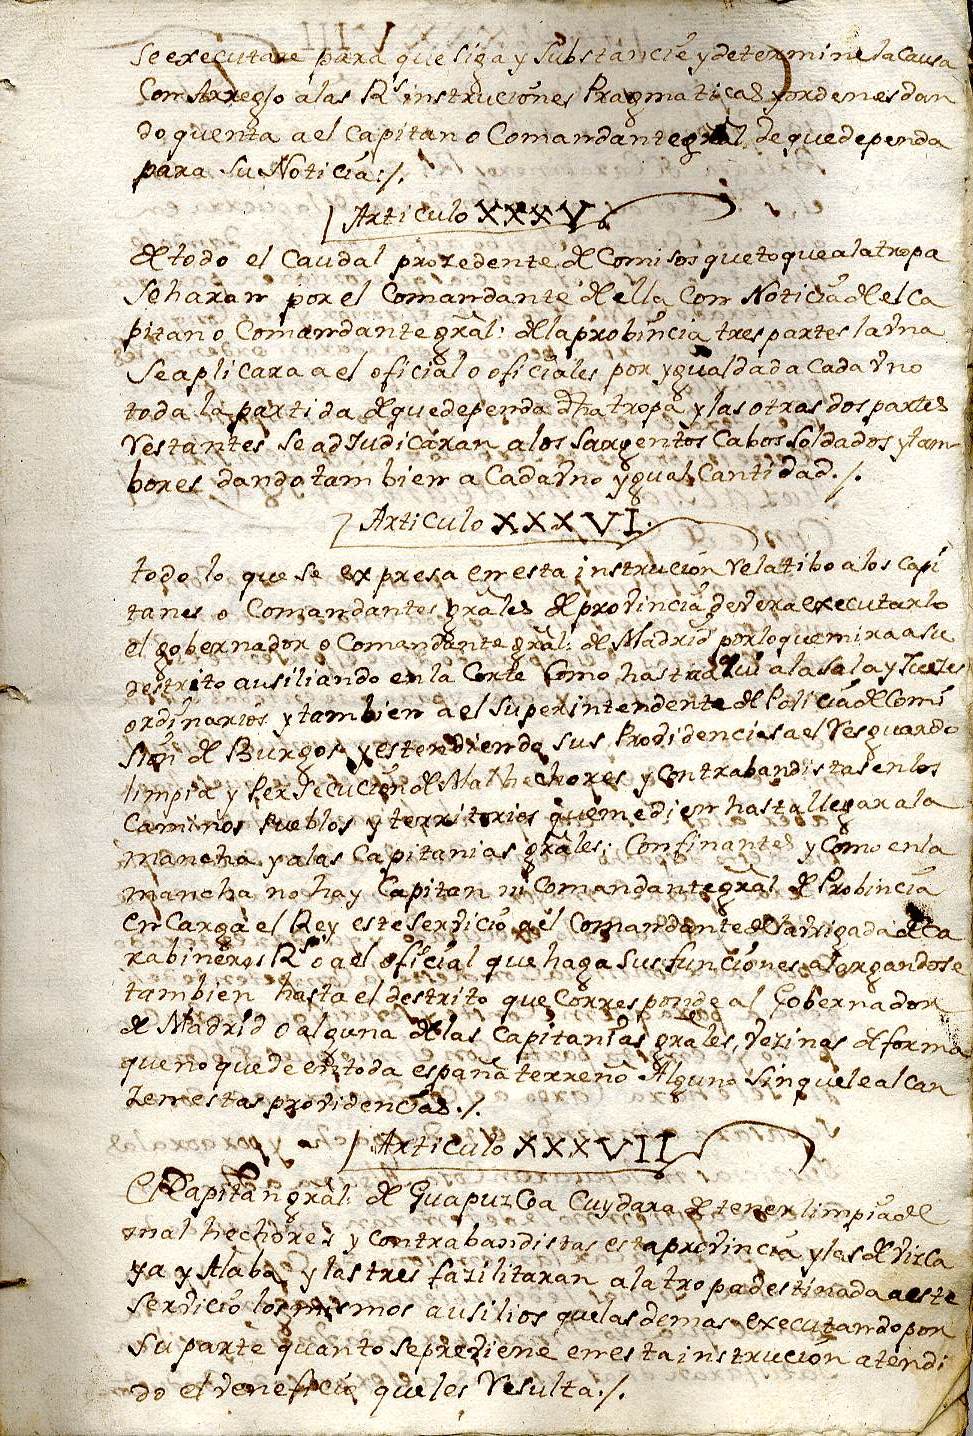 se executare para que siga y substancie y determine la causa
Con Arreglo a las Rs instruciones Pragmaticas y ordenes dan
do quenta a el Capitan o Comandante gral. de que dependa
para su Noticia:/.
Articulo XXXV
de todo el Caudal prozedente de Comisos que toque a la tropa
se haran por el Comandante de ella Con Noticia de el Ca
pitan o Comandante gral: de la probincia tres partes la vna
se aplicara a el oficial o oficiales por ygualdad a Cada vno
toda la partida de que dependa dha tropa y las otras dos partes
restantes se adjudicaran a los sargentos Cabos soldados y tam
bores dando tambien a Cada vno ygual Cantidad./.
Articulo XXXVI.
todo lo que se expresa en esta instrucion relatibo a los Capi
tanes o Comandantes grales de provincia devera executarlo
el gobernador o Comandante gral: de Madrid por lo que mira a su
destrito ausiliando en la Corte Como hasta aqui a la sala y Juezes
ordinarios y tambien a el superintendente de Policia de Comi
sion de Burgos y estendiendo sus Providencias a el resguardo
limpia y Persecucion de Malhechores y Contrabandistas en los
Caminos Pueblos y territorios que medien hasta llegar a la
mancha y a las Capitanias grales: Confinantes y Como en la
mancha no hay Capitan ni Comandante gral de Probincia
enCarga el Rey este servicio a el Comandante de la vrigada de Ca
rabineros Rs o a el oficial que haga sus funciones alargandose
tambien hasta el destrito que Corresponde al Gobernador
de Madrid o alguna de las Capitanias grales, vezinas de forma
que no quede en toda españa terreno Alguno sin que le alcan
zen estas providencias./.
Articulo XXXVII
El Capitan gral: de Guapuzcoa Cuydara de tener limpia de
mal hechores y Contrabandistas esta provincia y las de Vizca
ya y Alaba y las tres fazilitaran a la tropa destinada a este
servicio los mismos ausilios que las demas executando por
su parte quanto se previene en esta instrucion atendi
do el veneficio que les resulta:/.